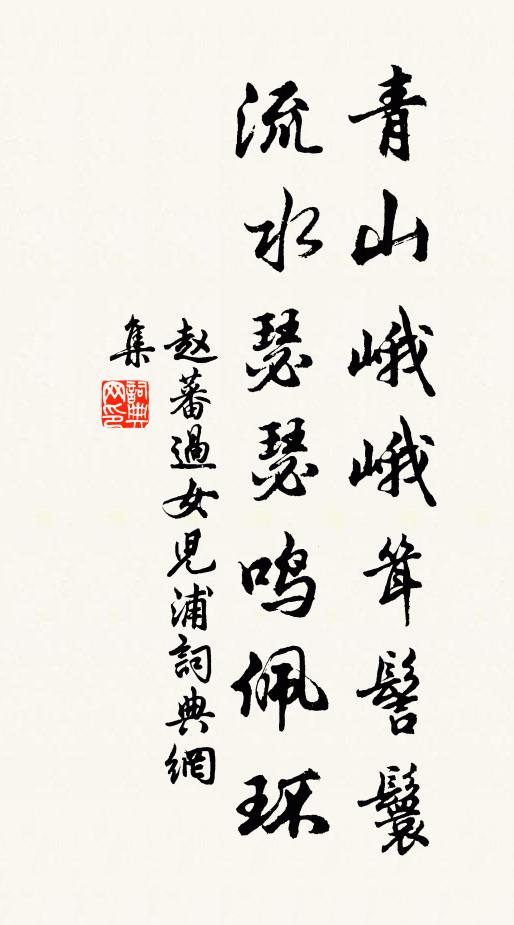 青山峨峨耸髻鬟
流水瑟瑟鸣佩环
赵蕃過女児浦詞典網
集
詞典网印